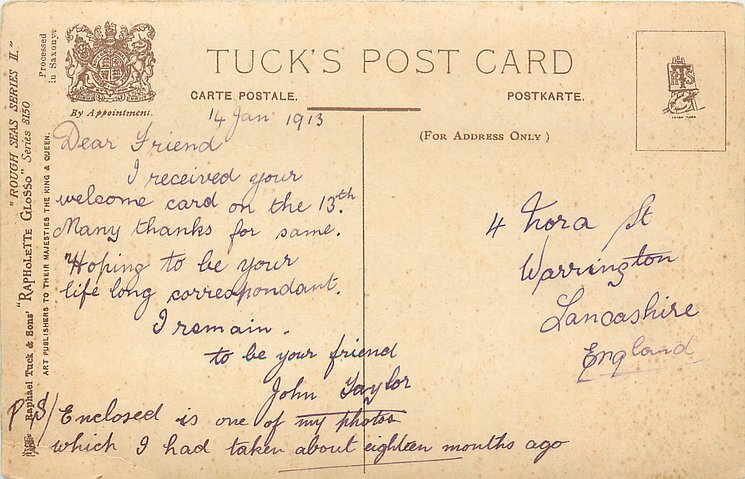 TUCK'S POST CARD
CARTE POSTALE.
POSTKARTE.
(FOR ADDRESS ONLY)
By Appointment.
Processed
in Saxony.
"ROUGH SEAS SERIES II."
Raphael Tuck & Sons' "RAPHOLETTE GLOSSO" Series 8150
ART PUBLISHERS TO THEIR MAJESTIES THE KING & QUEEN.
14 Jan 1913
Dear Friend
I received your
welcome card on the 13th.
Many thanks for same.
Hoping to be your
life long correspondant.
I remain.
to be your friend
John Taylor
P S/ Enclosed is one of my photos
which I had taken about eighteen months ago
4 Nora St
Warrington
Lancashire
England